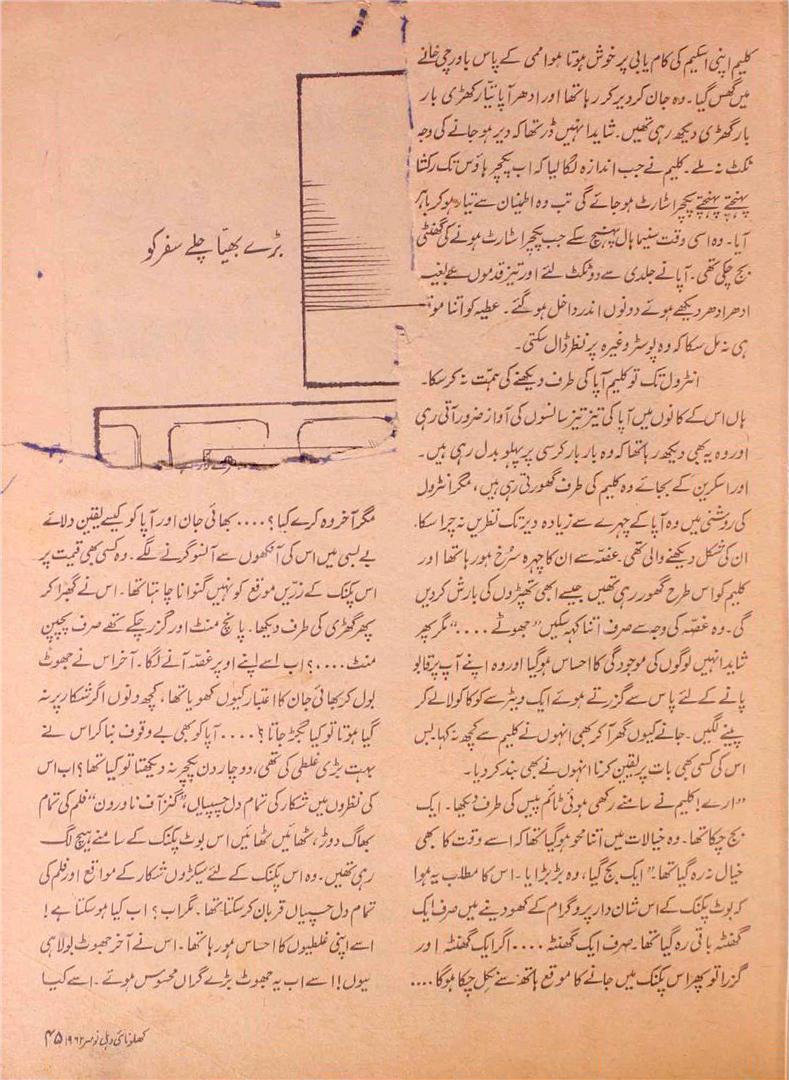 کلیم اپنی اسکیم کی کام یابی پر خوش ہوتا ہوا ممی کے پاس باورچی خانے
میں گھس گیا۔ وہ جان کر دیر کر رہا تھا اور ادھر آپا تیّار کھڑی بار
بار گھڑی دیکھ رہی تھیں۔ شاید انہیں ڈر تھا کہ دیر ہو جانے کی وجہ
ٹکٹ نہ ملے۔ کلیم نے جب اندازہ لگا لیا کہ اب پکچر ہاؤس تک رکشا
پہنچتے پہنچتے پکچر اسٹارٹ ہو جائے گی تب وہ اطینان سے تیار ہو کر باہر
آیا۔ وہ اسی وقت سنیما ہال پہنچ سکے جب پکچر اسٹارٹ ہونے کی گھنٹی
بج چکی تھی۔ آپا نے جلدی سے دو ٹکٹ لئے اور تیز قدموں سے بغیر
ادھر ادھر دیکھے ہوئے دونوں اندر داخل ہو گئے۔ عطیہ کو اتنا موقع
ہی نہ مل سکا کہ وہ پوسٹر وغیرہ پر نظر ڈال سکتی۔
انٹرول تک تو کلیم آپا کی طرف دیکھنے کی ہمّت نہ کر سکا۔
ہاں اس کے کانوں میں آپا کی تیز تیز سانسوں کی آواز ضرور آتی رہی
اور وہ یہ بھی دیکھ رہا تھا کہ وہ بار بار کرسی پر پہلو بدل رہی ہیں۔
اور اسکرین کے بجائے وہ کلیم کی طرف گھورتی رہی ہیں، مگر انٹرول
کی روشنی میں وہ آپا کے چہرے سے زیادہ دیر تک نظریں نہ چرا سکا۔
ان کی شکل دیکھنے والی تھی۔ غصّہ سے ان کا چہرہ سُرخ ہو رہا تھا اور
کلیم کو اس طرح گھور رہی تھیں جیسے ابھی تھپڑوں کی بارش کر دیں
گی۔ وہ غصّہ کی وجہ سے صرف اتنا کہہ سکیں ”جھوٹے ....“ مگر پھر
شاید انہیں لوگوں کی موجودگی کا احساس ہو گیا اور وہ اپنے آپ پر قابو
پانے کے لئے پاس سے گزرتے ہوئے ایک ویٹر سے کوکا کولا لے کر
پینے لگیں۔ جانے کیوں گھر آ کر بھی انہوں نے کلیم سے کچھ نہ کہا بس
اس کی کسی بھی بات پر یقین کرنا انہوں نے بھی بند کر دیا۔
”ارے! کلیم نے سامنے رکھی ہوئی ٹائم پیس کی طرف دیکھا۔ ایک
بج چکا تھا۔ وہ خیالات میں اتنا محو ہو گیا تھا کہ اسے وقت کا بھی
خیال نہ رہ گیا تھا۔” ایک بج گیا، وہ بڑبڑایا۔ اس کا مطلب یہ ہوا
کہ بوٹ پکنک کے اس شان دار پروگرام کے کھو دینے میں صرف ایک
گھنٹہ باقی رہ گیا تھا۔ صرف ایک گھنٹہ .... اگر ایک گھنٹہ اور
گزرا تو پھر اس پکنک میں جانے کا موقع ہاتھ سے نکل چکا ہوگا ....
بڑے بھیّا چلے سفر کو
مگر آخر وہ کرے کیا؟ .... بھائی جان اور آپا کو کیسے یقین دلائے
بے بسی میں اس کی آنکھوں سے آنسو گرنے لگے۔ وہ کسی بھی قیمت پر
اس پکنک کے زرّیں موقع کو نہیں گنوانا چاہتا تھا۔ اس نے گھبرا کر
پھر گھڑی کی طرف دیکھا۔ پانچ منٹ اور گزر چکے تھے صرف پچپن
منٹ ....؟ اب اسے اپنے اوپر غصّہ آنے لگا۔ آخر اس نے جھوٹ
بول کر بھائی جان کا اعتبار کیوں کھویا تھا، کچھ دنوں اگر شکار پر نہ
گیا ہوتا تو کیا بگڑ جاتا؟ .... آپا کو بھی بے وقوف بنا کر اس نے
بہت بڑی غلطی کی تھی، دو چار دن پکچر نہ دیکھتا تو کیا تھا؟ اب اس
کی نظروں میں شکار کی تمام دل چسپیاں، ”گنز آف ناورون“ فلم کی تمام
بھاگ دوڑ، ٹھائیں ٹھائیں اس بوٹ پکنک کے سامنے ہیچ لگ
رہی تھیں۔ وہ اس پکنک کے لئے سیکڑوں شکار کے مواقع اور فلم کی
تمام دل چسپیاں قربان کر سکتا تھا۔ مگر اب؟ اب کیا ہو سکتا ہے!
اسے اپنی غلطیوں کا احساس ہو رہا تھا۔ اس نے آخر جھوٹ بولا ہی
کیوں! اسے اب یہ جھوٹ بڑے گراں محسوس ہوئے۔ اسے کیا
کھلونا نئی دہلی نومبر ۱۹۶۲ ۴۵